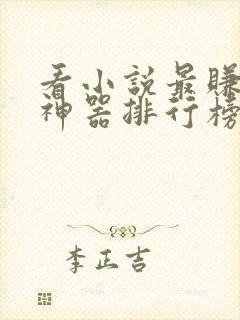 看小說最賺
神器排行榜
李正吉